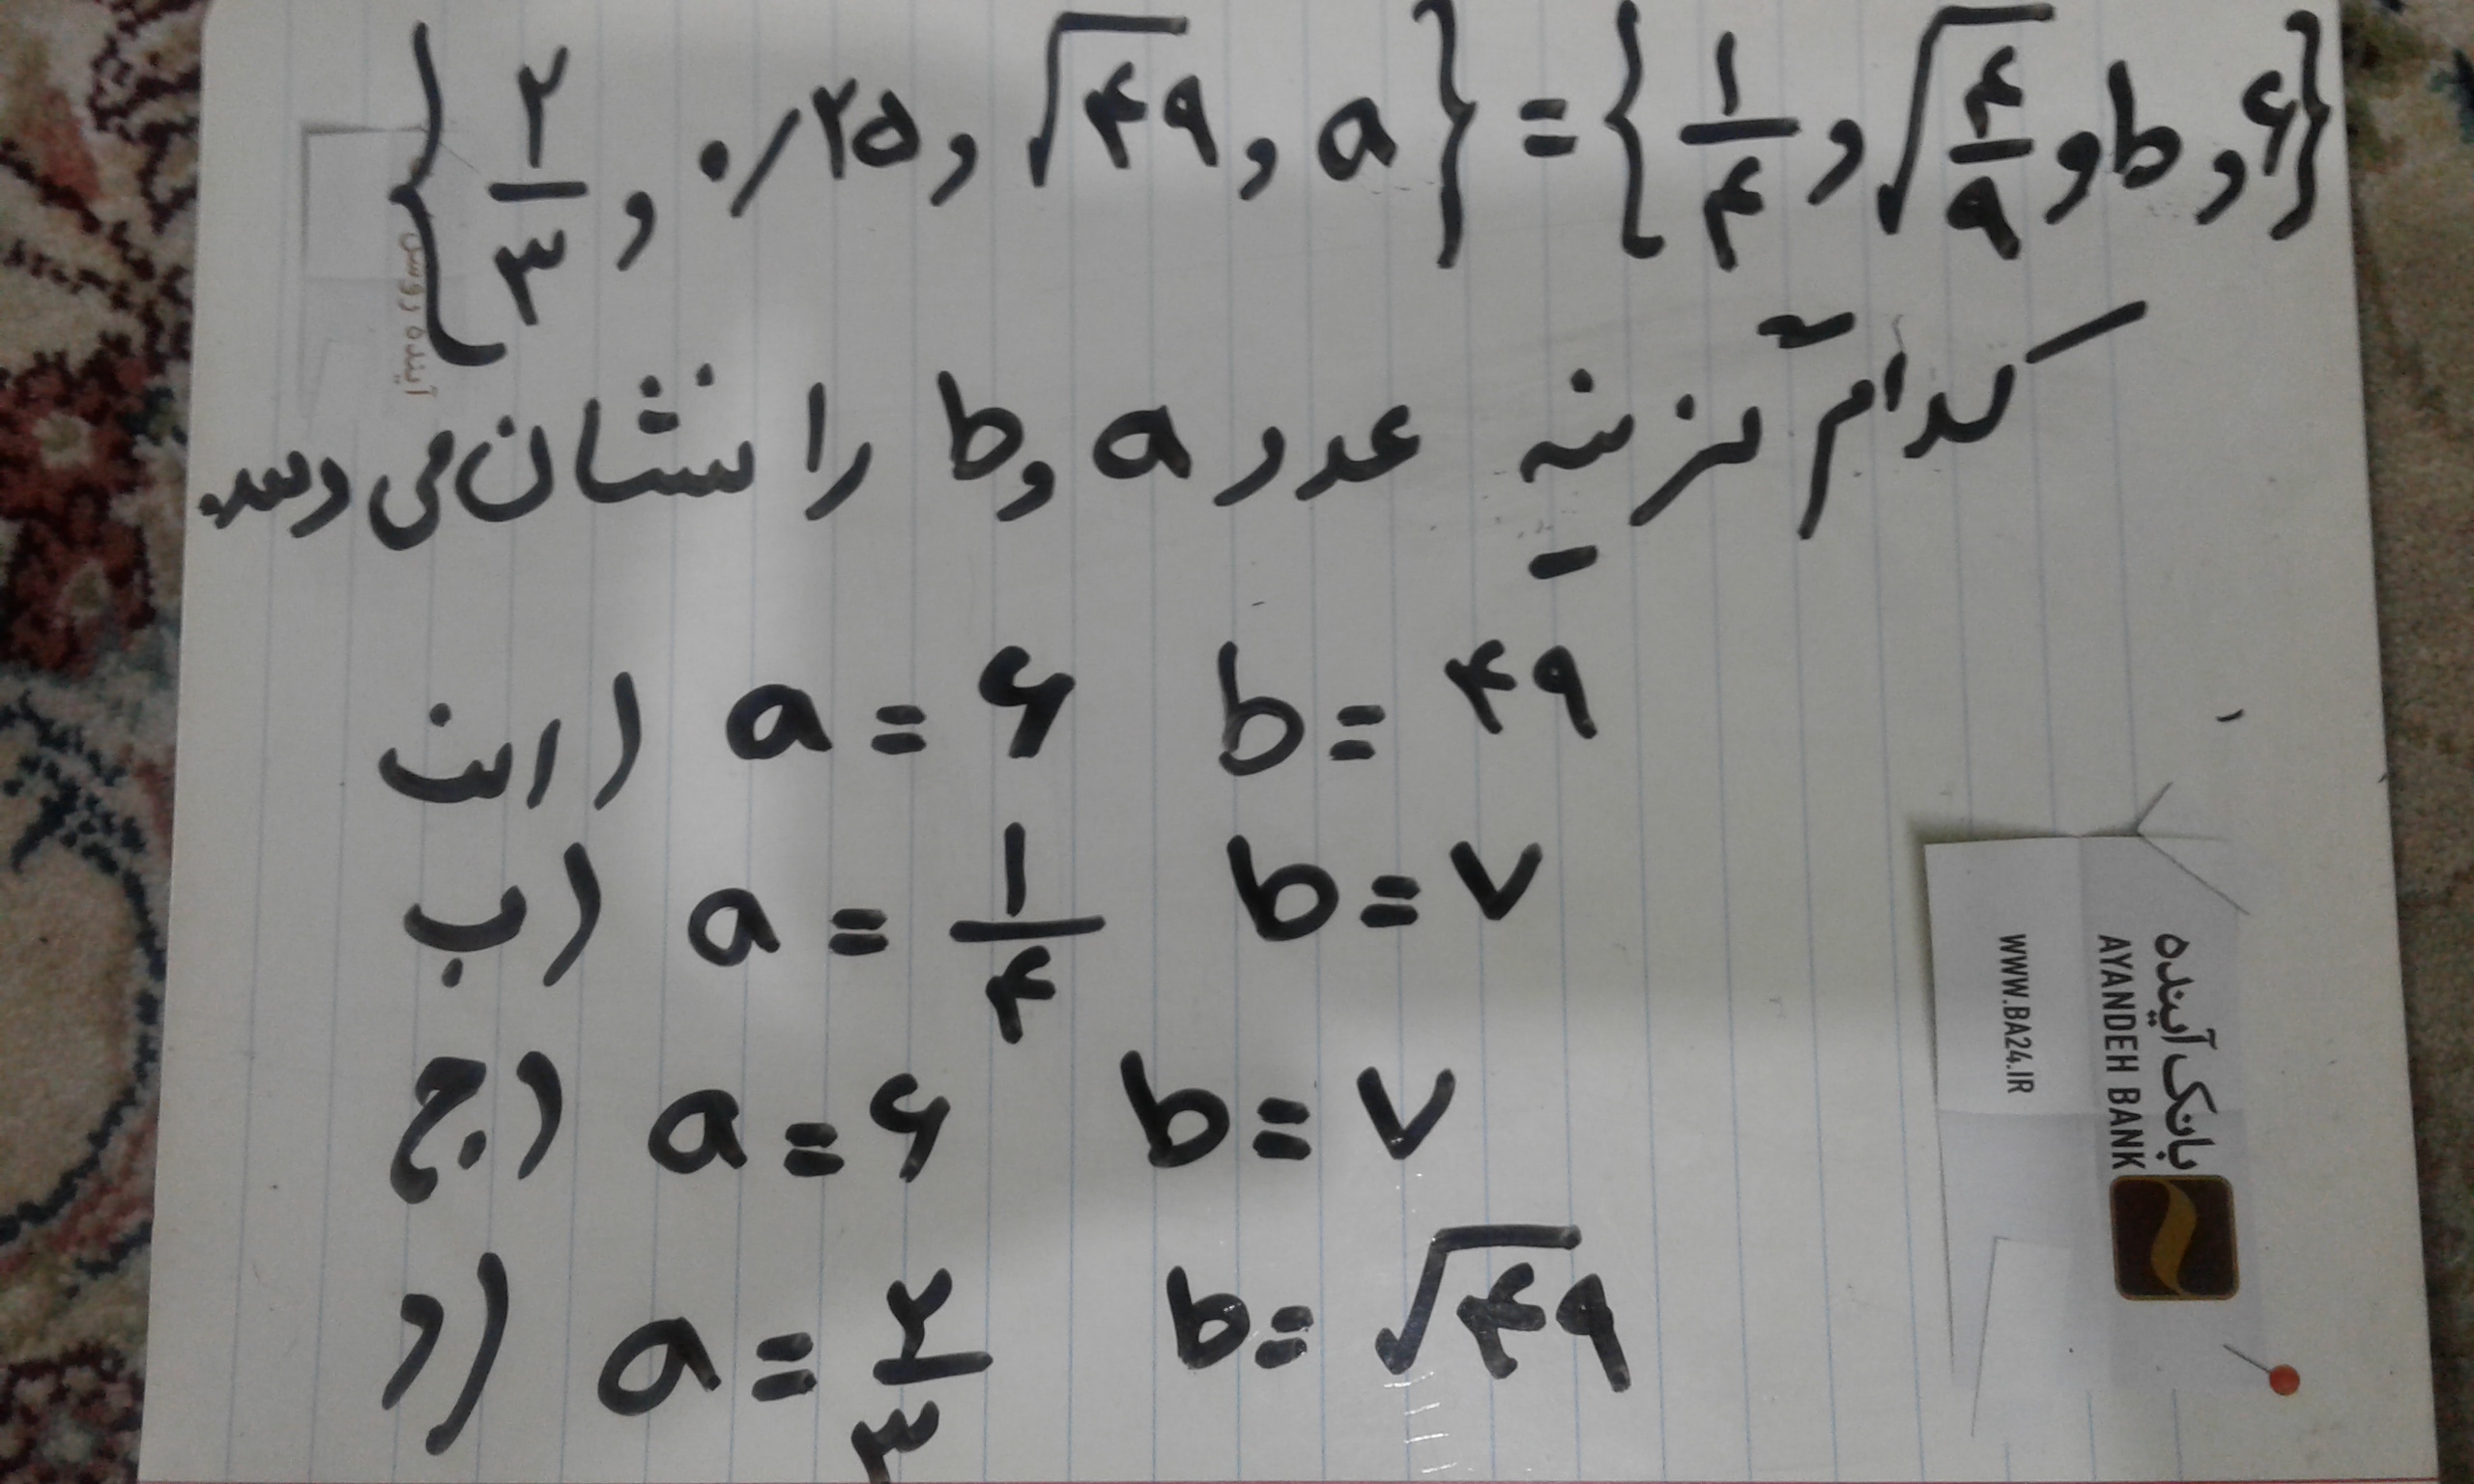 {۲/۳ , ۰/۲۵ , √۴۹ , a} = {۱/۴ , √۴/۹ , b , ۶}
کدام گزینه عدد a و b را نشان می دهد.
الف) a = ۶ b = ۴۹
ب) a = ۱/۴ b = ۷
ج) a = ۶ b = ۷
د) a = ۲/۳ b = √۴۹
آینده روشن
بانک آینده
AYANDEH BANK
WWW.BA24.IR